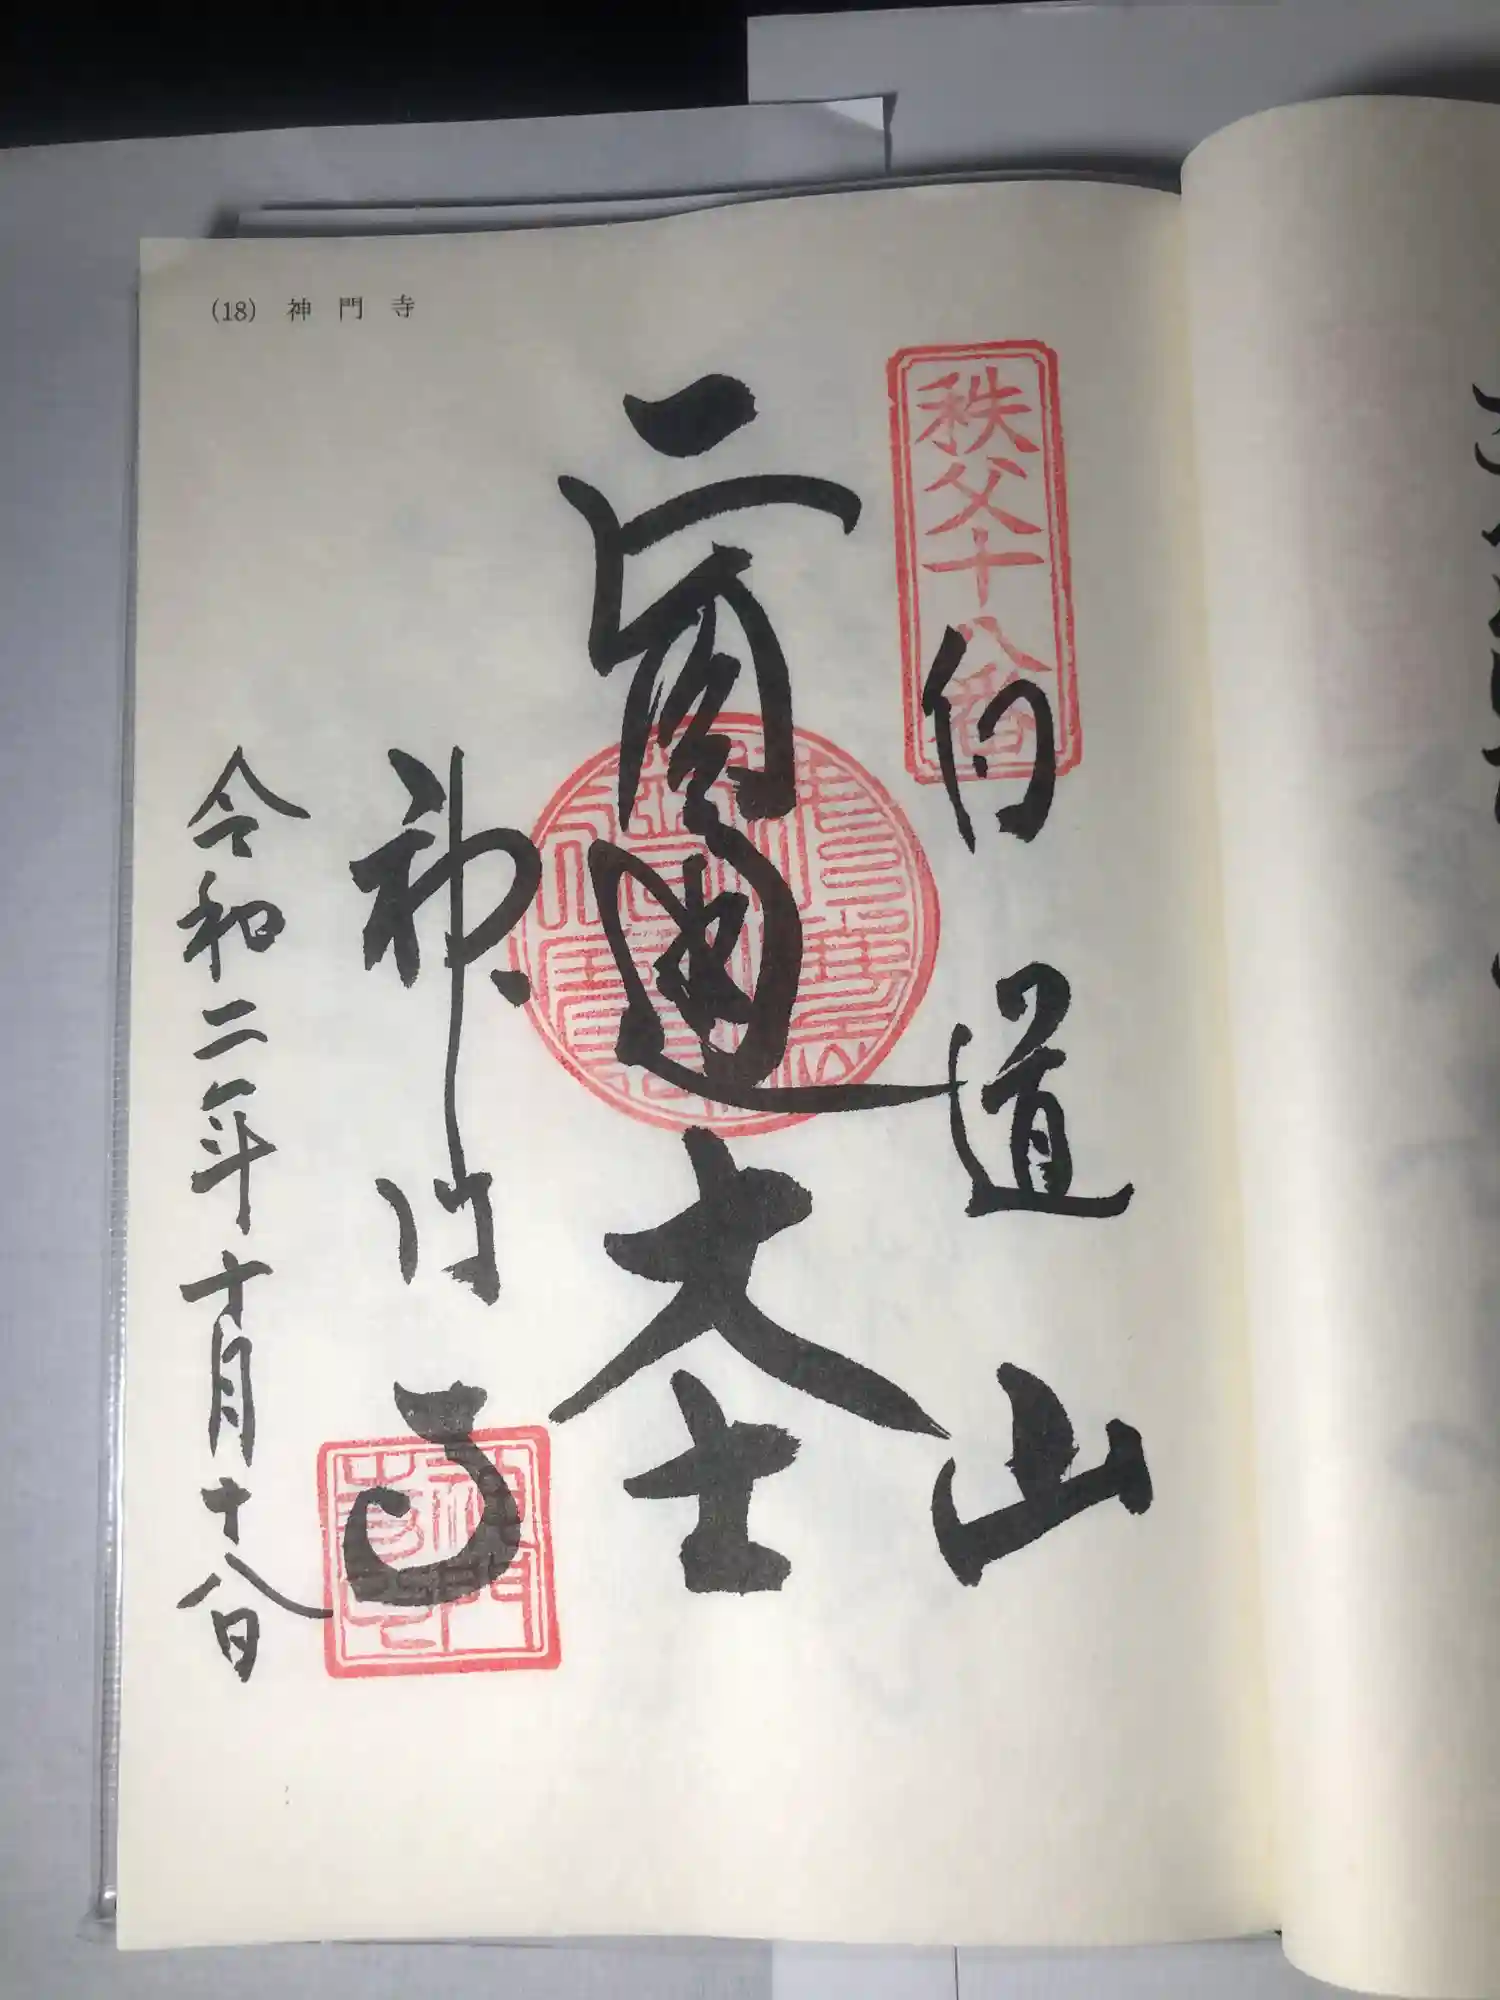 (18) 神門寺
秩父十八番
白道山
圓通大士
神門寺
令和二年十月十八日